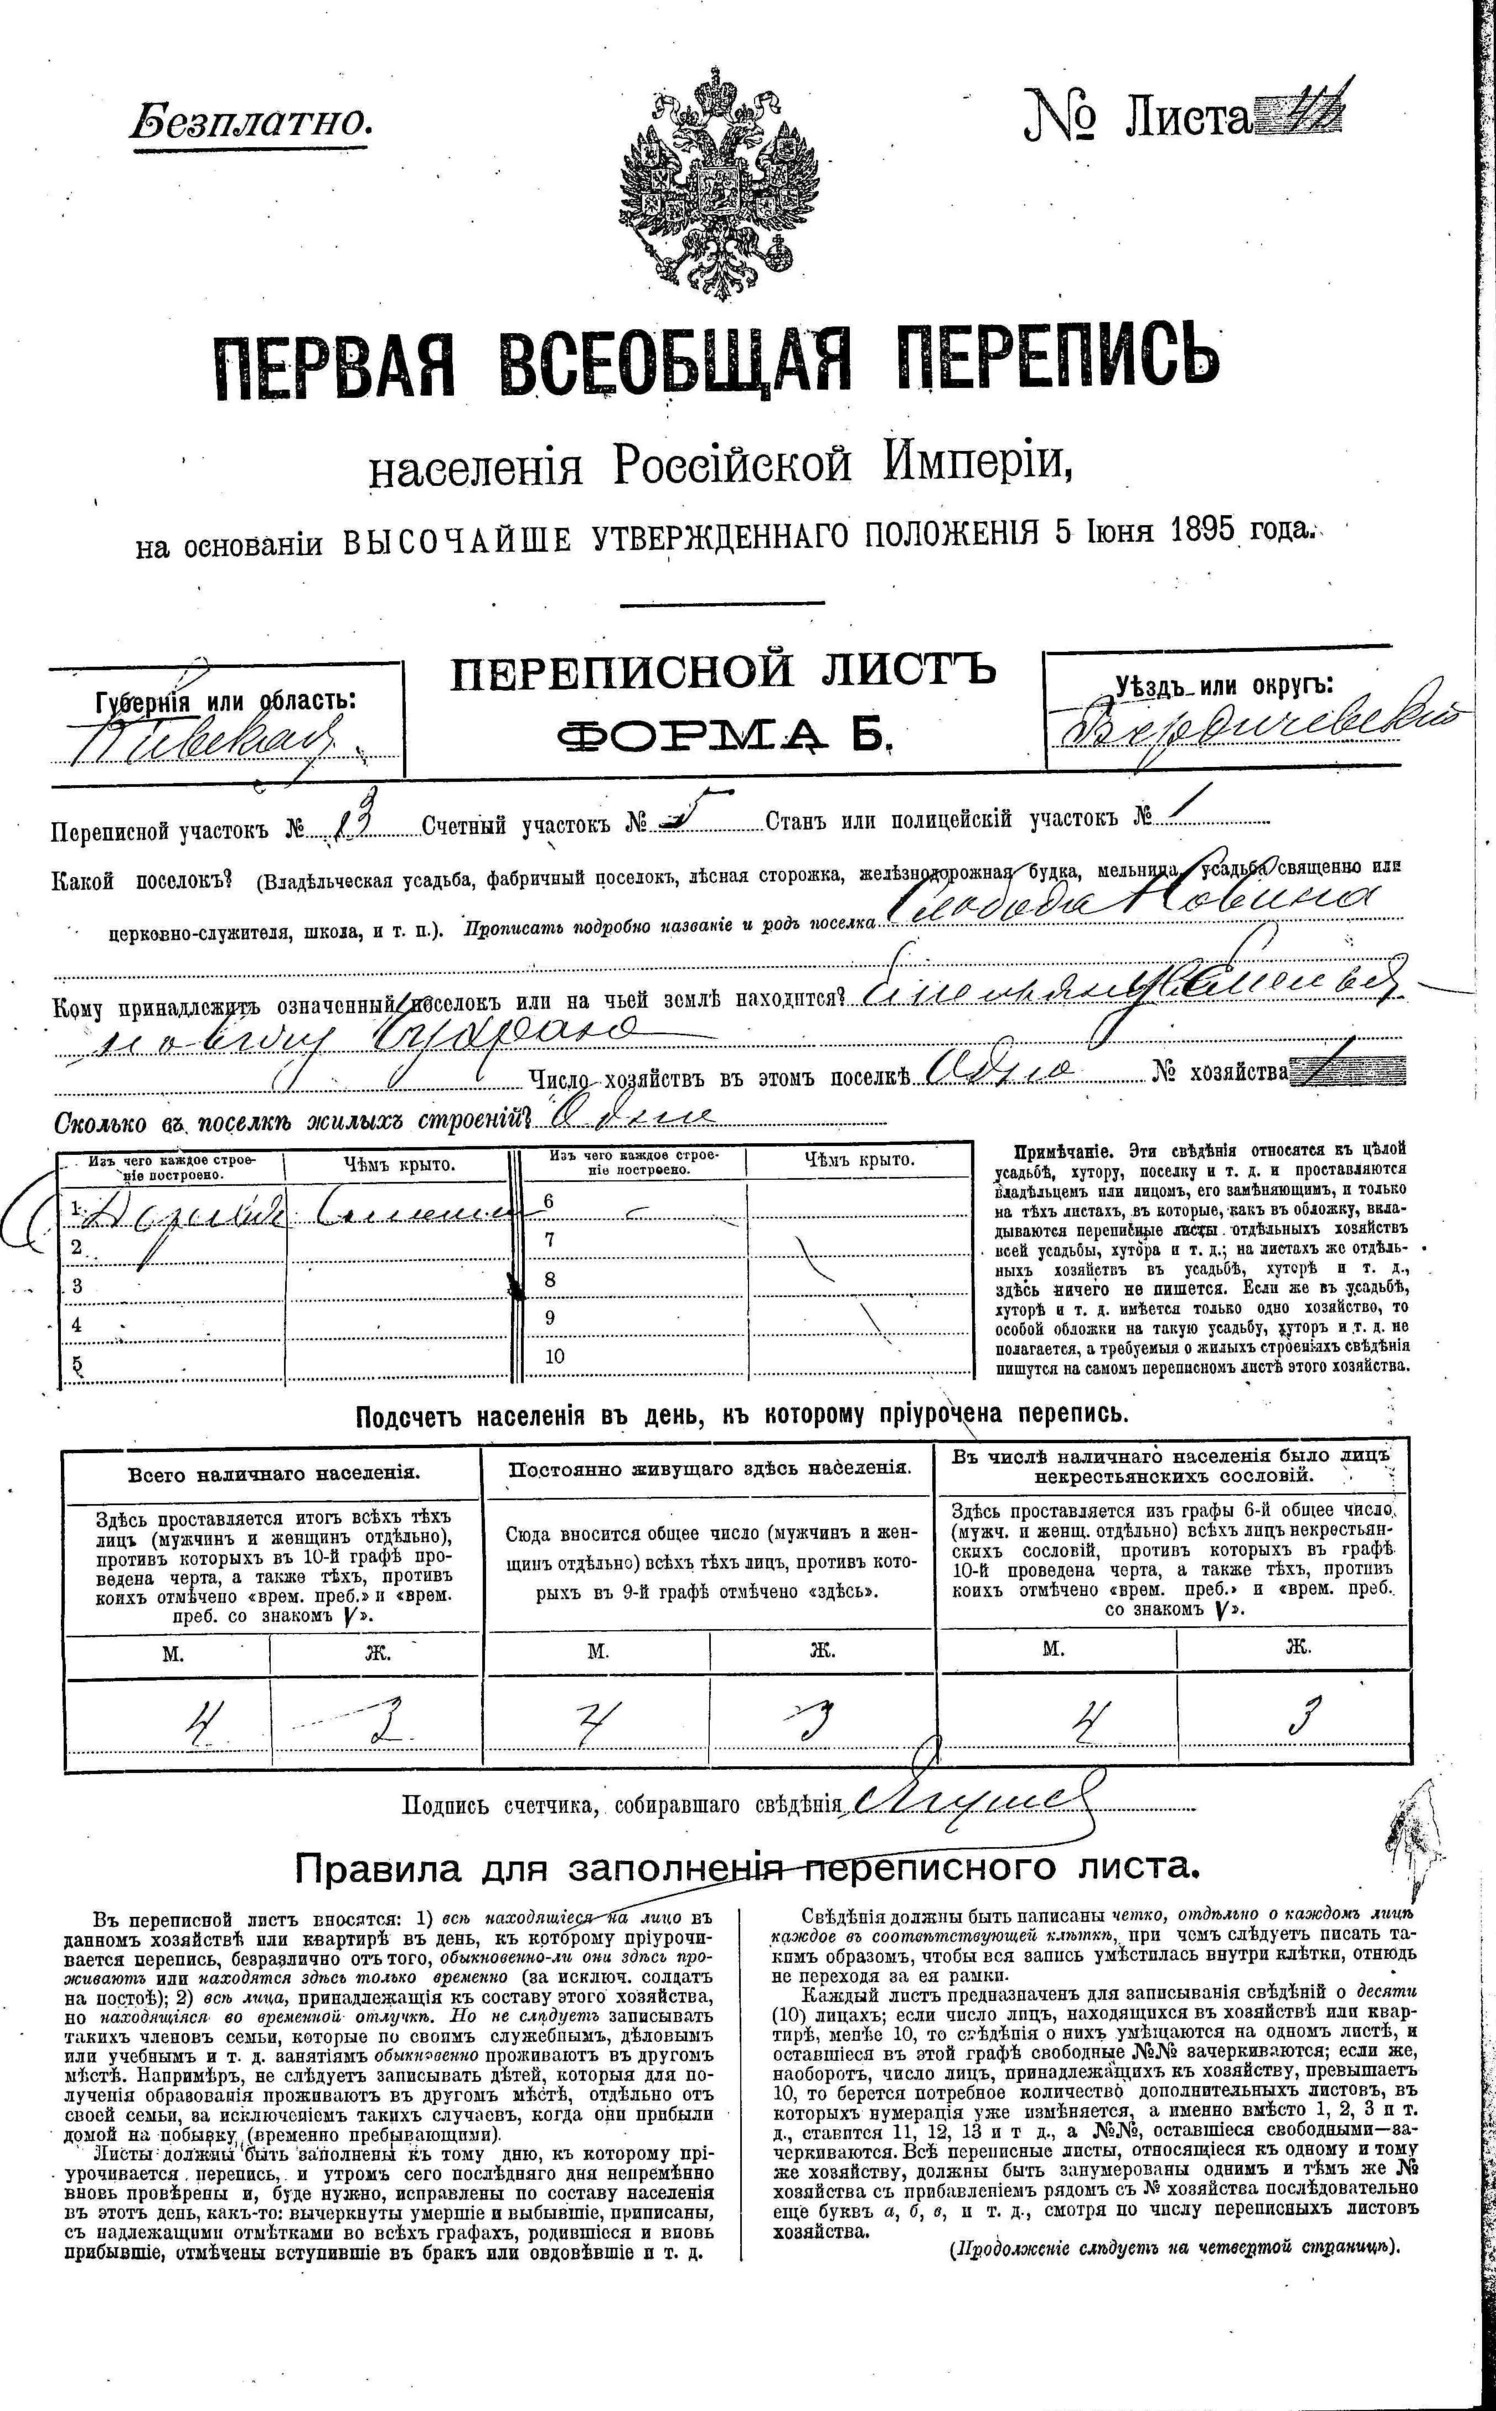 Безплатно.
№ Листа
ПЕРВАЯ ВСЕОБЩАЯ ПЕРЕПИСЬ
населенія Россійской Имперіи,
на основаніи ВЫСОЧАЙШЕ УТВЕРЖДЕННАГО ПОЛОЖЕНІЯ 5 Іюня 1895 года.
ПЕРЕПИСНОЙ ЛИСТЪ
ФОРМА Б.
Губернія или область:
Кіевская
Уѣздъ или округъ:
Бердичевскій
Переписной участокъ № 13 Счетный участокъ № 5 Станъ или полицейскій участокъ № 1
Какой поселокъ? (Владѣльческая усадьба, фабричный поселокъ, лѣсная сторожка, желѣзнодорожная будка, мельница, усадьба священно или
церковно-служителя, школа, и т. п.). Прописать подробно названіе и родъ поселка Слобода Новина
Кому принадлежитъ означенный поселокъ или на чьей землѣ находится?
Число хозяйствъ въ этомъ поселкѣ Одно № хозяйства 1
Сколько въ поселкѣ жилыхъ строеній? Одно
Изъ чего каждое строе-
ніе построено.
Чѣмъ крыто.
Изъ чего каждое строе-
ніе построено.
Чѣмъ крыто.
1 6
2 7
3 8
4 9
5 10
Примѣчаніе. Эти свѣдѣнія относятся къ цѣлой
усадьбѣ, хутору, поселку и т. д. и проставляются
владѣльцемъ или лицомъ, его замѣняющимъ, и только
на тѣхъ листахъ, въ которые, какъ въ обложку, вкла-
дываются переписные листы отдѣльныхъ хозяйствъ
всей усадьбы, хутора и т. д.; на листахъ же отдѣль-
ныхъ хозяйствъ въ усадьбѣ, хуторѣ и т. д.,
здѣсь ничего не пишется. Если же въ усадьбѣ,
хуторѣ и т. д. имѣется только одно хозяйство, то
особой обложки на такую усадьбу, хуторъ и т. д. не
полагается, а требуемыя о жилыхъ строеніяхъ свѣдѣнія
пишутся на самомъ переписномъ листѣ этого хозяйства.
Подсчетъ населенія въ день, къ которому пріурочена перепись.
Всего наличнаго населенія.
Здѣсь проставляется итогъ всѣхъ тѣхъ
лицъ (мужчинъ и женщинъ отдѣльно),
противъ которыхъ въ 10-й графѣ про-
ведена черта, а также тѣхъ, противъ
коихъ отмѣчено «врем. преб.» и «врем.
преб. со знакомъ V».
Постоянно живущаго здѣсь населенія.
Сюда вносится общее число (мужчинъ и жен-
щинъ отдѣльно) всѣхъ тѣхъ лицъ, противъ кото-
рыхъ въ 9-й графѣ отмѣчено «здѣсь».
Въ числѣ наличнаго населенія было лицъ
некрестьянскихъ сословій.
Здѣсь проставляется изъ графы 6-й общее число
(мужч. и женщ. отдѣльно) всѣхъ лицъ некрестьян-
скихъ сословій, противъ которыхъ въ графѣ
10-й проведена черта, а также тѣхъ, противъ
коихъ отмѣчено «врем. преб.» и «врем. преб.
со знакомъ V».
М. Ж. М. Ж. М. Ж.
4 3 4 3 4 3
Подпись счетчика, собиравшаго свѣдѣнія
Правила для заполненія переписного листа.
Въ переписной листъ вносятся: 1) всѣ находящіеся на лицо въ
данномъ хозяйствѣ или квартирѣ въ день, къ которому пріурочи-
вается перепись, безразлично отъ того, обыкновенно-ли они здѣсь про-
живаютъ или находятся здѣсь только временно (за исключ. солдатъ
на постоѣ); 2) всѣ лица, принадлежащія къ составу этого хозяйства,
но находящіяся во временной отлучкѣ. Но не слѣдуетъ записывать
такихъ членовъ семьи, которые по своимъ служебнымъ, дѣловымъ
или учебнымъ и т. д. занятіямъ обыкновенно проживаютъ въ другомъ
мѣстѣ. Напримѣръ, не слѣдуетъ записывать дѣтей, которыя для по-
лученія образованія проживаютъ въ другомъ мѣстѣ, отдѣльно отъ
своей семьи, за исключеніемъ такихъ случаевъ, когда они прибыли
домой на побывку (временно пребывающими).
Листы должны быть заполнены къ тому дню, къ которому прі-
урочивается перепись, и утромъ сего послѣдняго дня непремѣнно
вновь провѣрены и, буде нужно, исправлены по составу населенія
въ этотъ день, какъ-то: вычеркнуты умершіе и выбывшіе, приписаны,
съ надлежащими отмѣтками во всѣхъ графахъ, родившіеся и вновь
прибывшіе, отмѣчены вступившіе въ бракъ или овдовѣвшіе и т. д.
Свѣдѣнія должны быть написаны четко, отдѣльно о каждомъ лицѣ
каждое въ соотвѣтствующей клѣткѣ, при чемъ слѣдуетъ писать та-
кимъ образомъ, чтобы вся запись умѣстилась внутри клѣтки, отнюдь
не переходя за ея рамки.
Каждый листъ предназначенъ для записыванія свѣдѣній о десяти
(10) лицахъ; если число лицъ, находящихся въ хозяйствѣ или квар-
тирѣ, менѣе 10, то свѣдѣнія о нихъ умѣщаются на одномъ листѣ, и
оставшіеся въ этой графѣ свободные №№ зачеркиваются; если же,
наоборотъ, число лицъ, принадлежащихъ къ хозяйству, превышаетъ
10, то берется потребное количество дополнительныхъ листовъ, въ
которыхъ нумерація уже измѣняется, а именно вмѣсто 1, 2, 3 и т.
д., ставится 11, 12, 13 и т д., а №№, оставшіеся свободными—за-
черкиваются. Всѣ переписные листы, относящіеся къ одному и тому
же хозяйству, должны быть занумерованы однимъ и тѣмъ же №
хозяйства съ прибавленіемъ рядомъ съ № хозяйства послѣдовательно
еще буквъ а, б, в, и т. д., смотря по числу переписныхъ листовъ
хозяйства.
(Продолженіе слѣдуетъ на четвертой страницѣ).